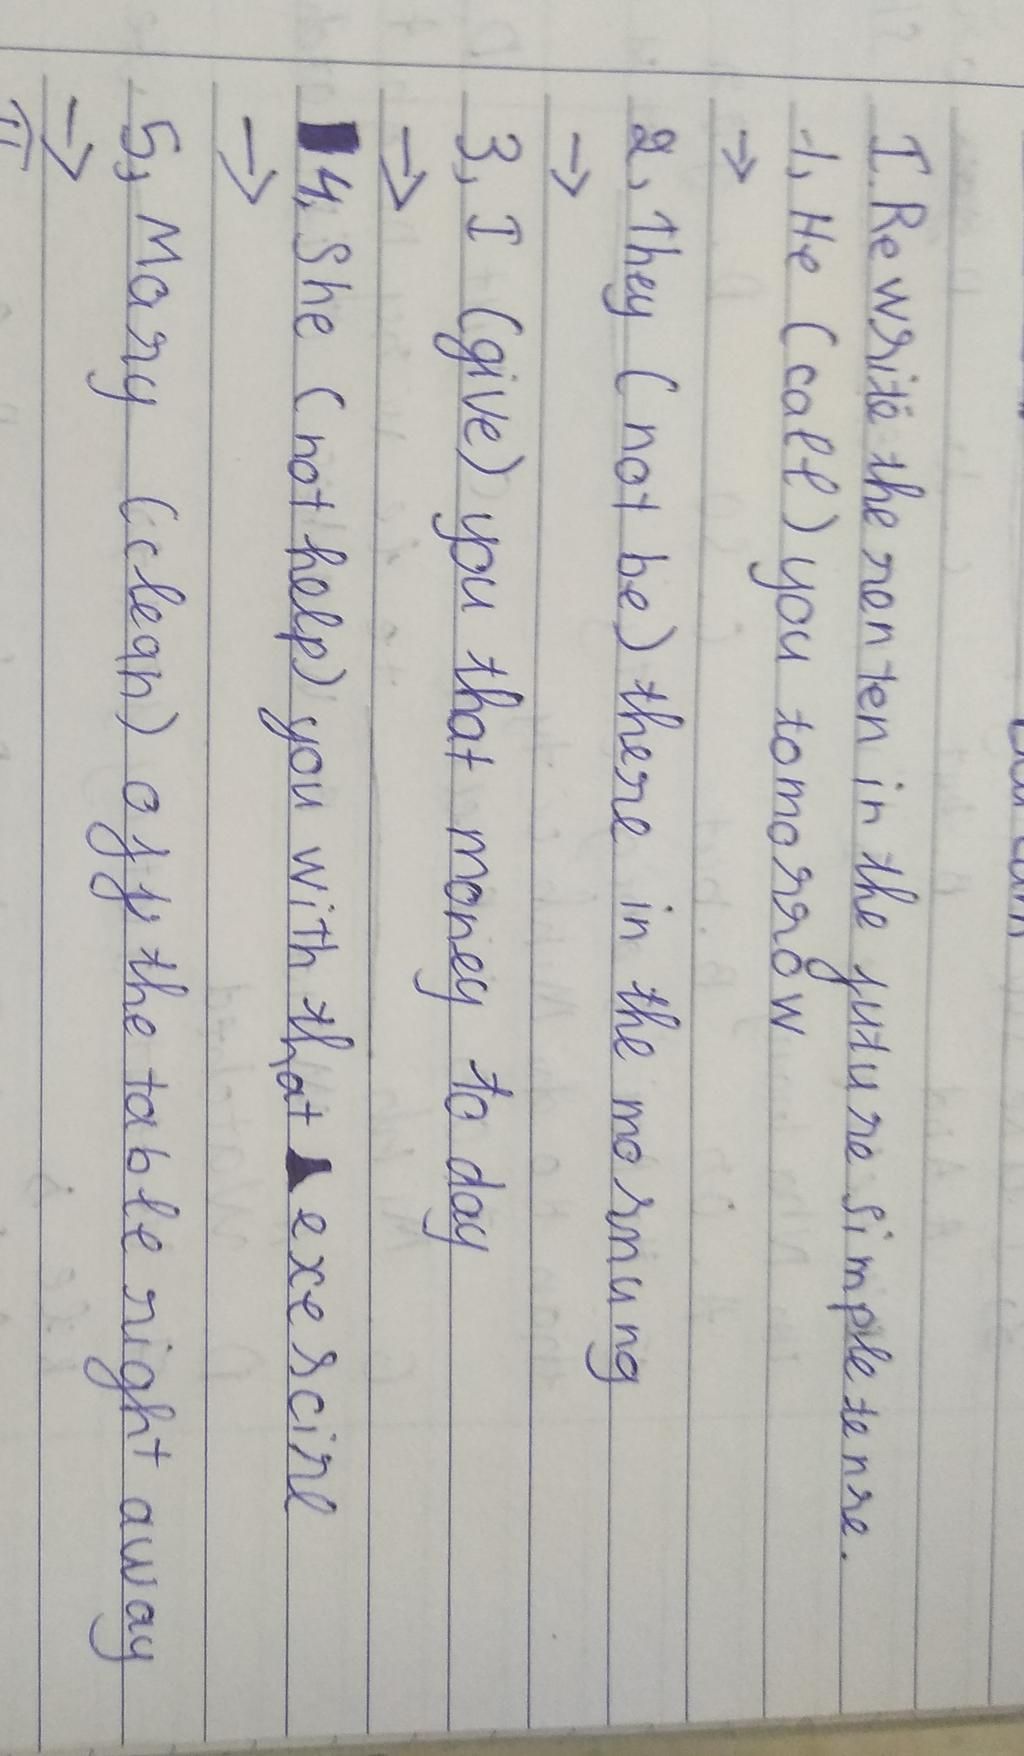 I. Rewrite the senten in the future simple tense.
1, He (call) you tomorrow
→
2, They (not be) there in the mornung
→
3, I (give) you that money to day
→
4, She (not help) you with that exercise
→
5, Mary (clean) off the table right away
→
II